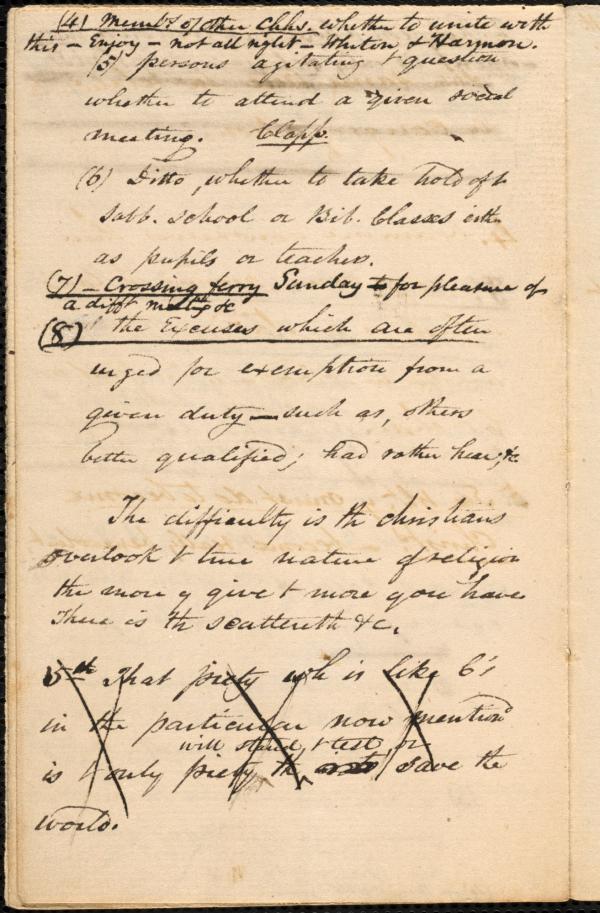 (4) Membs of other Chhs. whether to unite with
this – Enjoy – not all right – Whiton & Harmon.
(5) persons agitating t question
whether to attend a given social
meeting. Clapp.
(6) Ditto, whether to take hold of t
Sabb. School or Bib. Classes eith.
as pupils or teachers.
(7) – Crossing ferry Sunday to for pleasure of
a difft meetg &c
(8) the Excuses which are often
urged for exemption from a
given duty – such as, others
better qualified; had rather hear, &c
The difficulty is th christians
overlook t true nature of religion
the more y give t more you have
There is th scattereth &c.
5th That piety wh is like C's
in the particular now mentiond
will stand t test, or
is t only piety th save the
world.